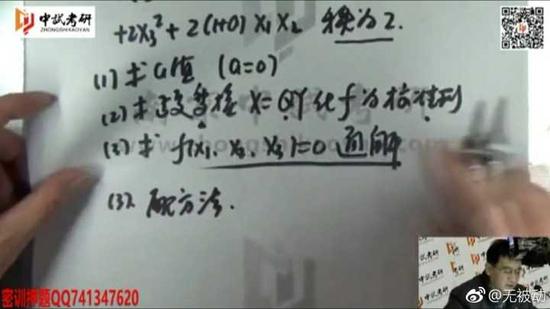 中试考研
ZHONGSHIKAOYAN
+2X₃²+2(1+a)X₁X₂ 秩为2.
(1) 求a值 (a=0)
(2) 求正交变换 X=QY化f为标准型
(3) 求 f(X₁、X₂、X₃)=0 通解
(3). 配方法.
密训押题QQ741347620
@无被动